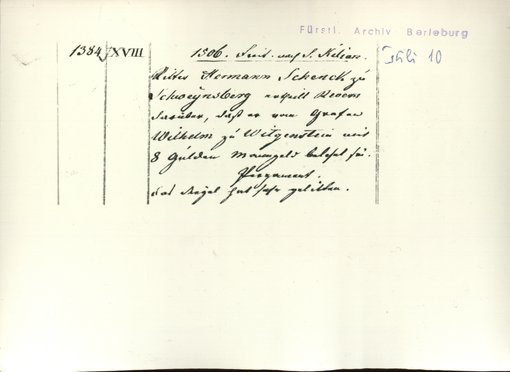 Fürstl. Archiv Berleburg
1384 XVIII 1506. Freit. nach S. Kilian. Juli 10
Ritter Hermann Schenck zu
Schweynsberg ertheilt Revers
darüber, daß er vom Grafen
Wilhelm zu Witgenstein mit
8 Gulden Manngeld belehnt sei.
Pergament.
Das Siegel hat sehr gelitten.